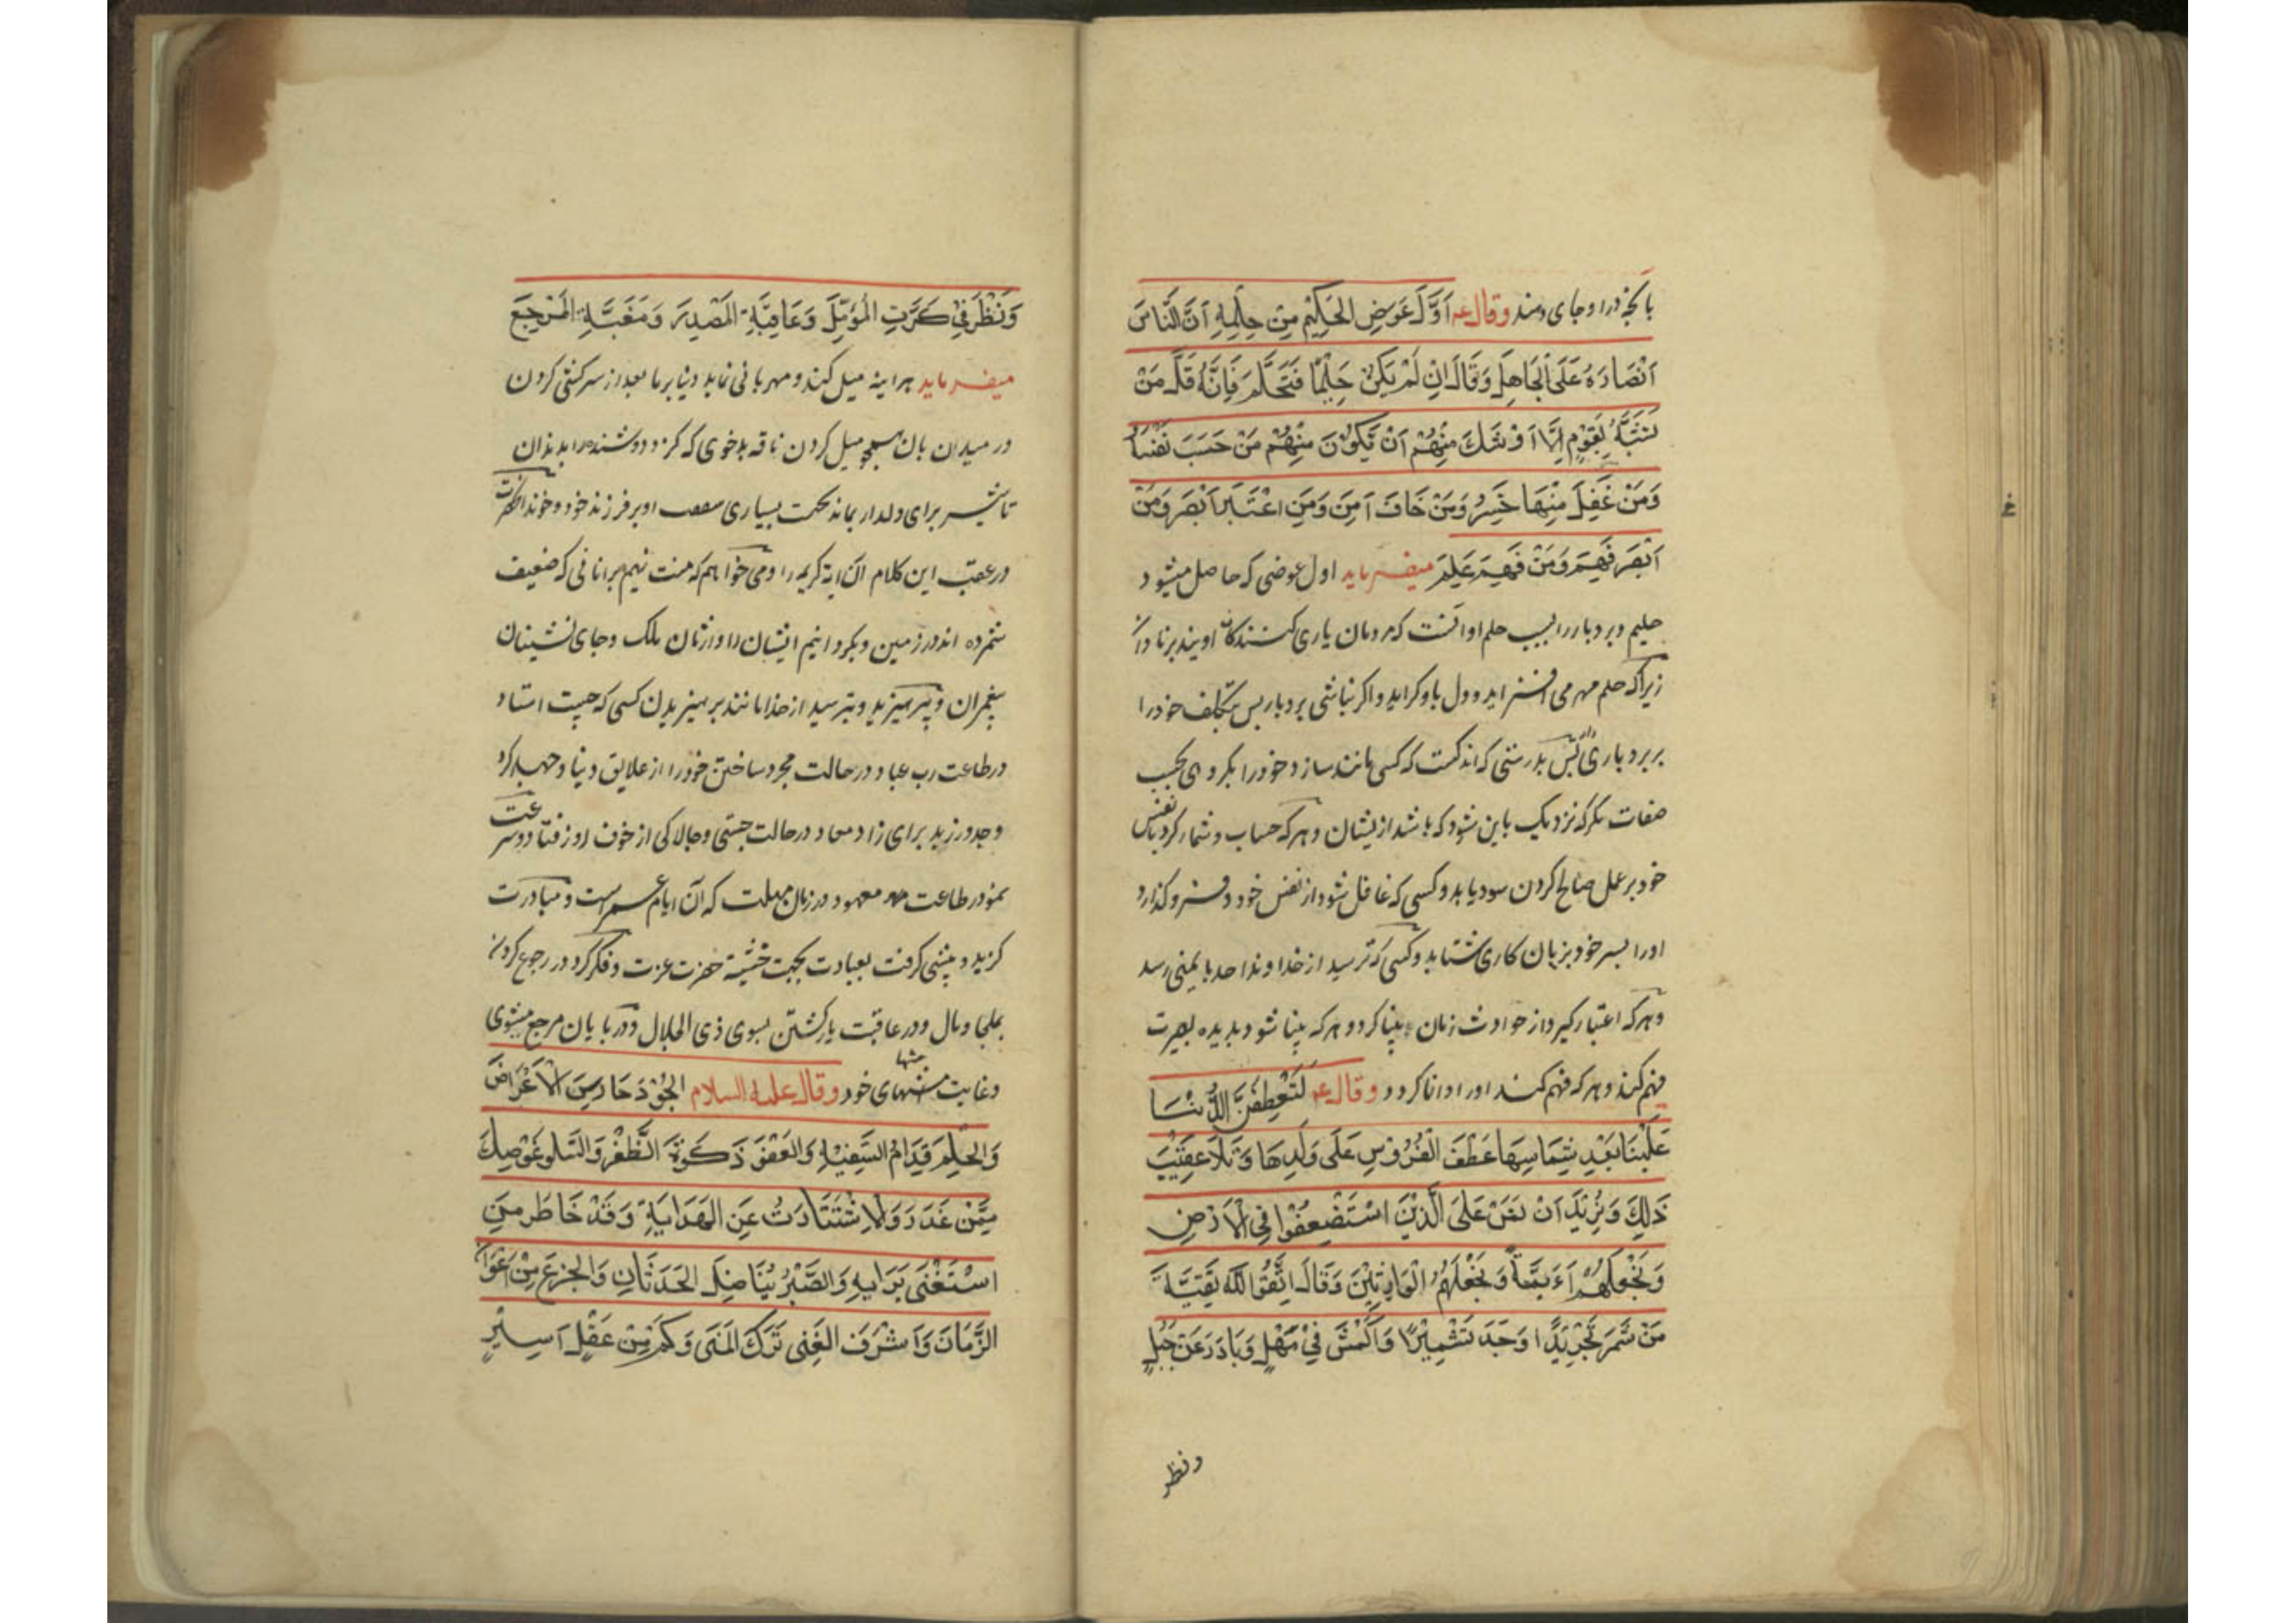 با بخردراو جای دهند وقال عه اَوَّلَ عَوَضِ الحَكِيْمِ مِنْ حِلْمِهِ اَنَّ النَّاسَ
اَنْصَارَهُ عَلَى الْجَاهِلِ وَقَالَ اِنْ لَمْ يَكُنْ حَلِيْمًا فَتَحَلَّمَ فَاِنَّهُ قَلَّ مَنْ
تَشَبَّهَ بِقَوْمٍ اِلَّا اَوْشَكَ مِنْهُمْ اَنْ يَكُوْنَ مِنْهُمْ مَنْ حَسَبَ نَفْسَهُ
وَمَنْ غَفِلَ مِنْهَا خَسِرُ وَمَنْ خَافَ اَمِنَ وَمَنِ اعْتَبَرَ اَبْصَرَ وَمَنْ
اَبْصَرَ فَهِمَ وَمَنْ فَهِمَ عَلِمَ میفرماید اول عوضی که حاصل میشود
حلیم و بردبار را بسبب حلم او انست که مردمان یاری کنندکان اویند بر نادان
زیراکه حلم مهر می افزاید و دل باو کراید و اکر نباشی بردبار پس بتکلف خود را
بر بردباری پس بدرستی که اندکست که کسی مانند سازد خود را بکروهی بحسب
صفات مکر که نزدیک باین شود که باشد از یشان و هرکه حساب و شمار کرد با نفس
خود بر عمل صالح کردن سود یابد و کسی که غافل شود از نفس خود و فرو کذارد
او را بسر خود بزیان کاری شتابد و کسی که ترسید از خداوند احد با یمنی رسد
و هرکه اعتبار کیرد از حوادث زمان بینا کردد و هرکه بینا شود بدیده بصیرت
فهم کند و هرکه فهم کند اورا دانا کردد وقال عه لَتَعْطِفَنَّ الدُّنْيَا
عَلَيْنَا بَعْدِ شِمَاسِهَا عَطْفَ الْضُرُوْسِ عَلَى وَلَدِهَا وَتَلَا عَقِيْبَ
ذٰلِكَ وَنُرِيْدَ اَنْ نَمَنَّ عَلَى الَّذِيْنَ اسْتَضْعِفُوْا فِى الْاَرْضِ
وَنَجْعَلَهُمْ اَءَيِمَّةً وَنَجْعَلَهُمُ الْوَارِثِيْنَ وَقَالَ اتَّقُوْا اللّٰهَ تَقِيَّةَ
مَنْ شَمَّرَ تَجْرِيْدًا وَجَدَ تَشْمِيْرًا وَاَكْمَشَ فِيْ مَهْلٍ وَبَادَرَ عَنْ وَجَلٍ
ونظر
وَنَظَرَ فِيْ كَرَّتِ الْمُؤَيِّلَ وَعَاقِبَةِ الْمَصْدِرَ وَمَغَبَّةِ الْمَرْجِعَ
میفرماید هراینه میل کند و مهربانی نماید دنیا برما بعد از سرکشی کردن
در میدان بان همچو میل کردن ناقه بدخوی که کزد دوشنده را بدندان
تا شیر برای ولد او بماند بجهت بسیاری او بر فرزند خود و خواند انحضرت
در عقب این کلام آن ایة کریمه را و می خواهم که منت نهیم برانانی که ضعیف
شمرده اند در زمین و بکردانیم ایشان را وارثان ملک و جای نشینان
پیغمران و بپرهیزید و بترسید از خدا مانند پرهیزیدن کسی که چست استاد
در طاعت رب عباد در حالت مجرد ساختن خود را از علایق دنیا و جهد کرد
و جد ورزید برای زاد معاد در حالت چستی و چالاکی از خوف روز فتاد و سرعت
نمود در طاعت معهود در زمان مهلت که آن ایام عمر است و مبادرت
کزید و پیشی کرفت بعبادت بجهت خشیة حضرت عزت و فکر کرد در رجوع کردن
بملجا و مال و در عاقبت بازکشتن بسوی ذی الجلال و در پایان مرجع میشوی
و غایت منتهای خود وقال علیه السلام الجُوْدَ حَارِسَ الْاَعْرَاضَ
وَالحِلْمَ فِدَامُ السَّفِيْهِ وَالعَفْوَ ذَكٰوةَ الظَّفْرَ وَالسَّلوُ عَوْضِكَ
مِمَّنْ غَدَرَ وَالاِسْتَشَارَتُ عَيْنِ الهَدَايَةِ وَقَدْ خَاطَرَ مَنِ
اسْتَغْنَى بَرَايِهِ وَالصَّبْرُ يُنَاضِلَ الحَدَثَانِ وَالجزَعَ مِنْ اَعْوَانِ
الزَّمَانَ وَاَشْرَفَ الغِنٰى تَرْكَ الْمَنٰى وَكَمْ مِنْ عَقْلٍ اَسِيْرٍ